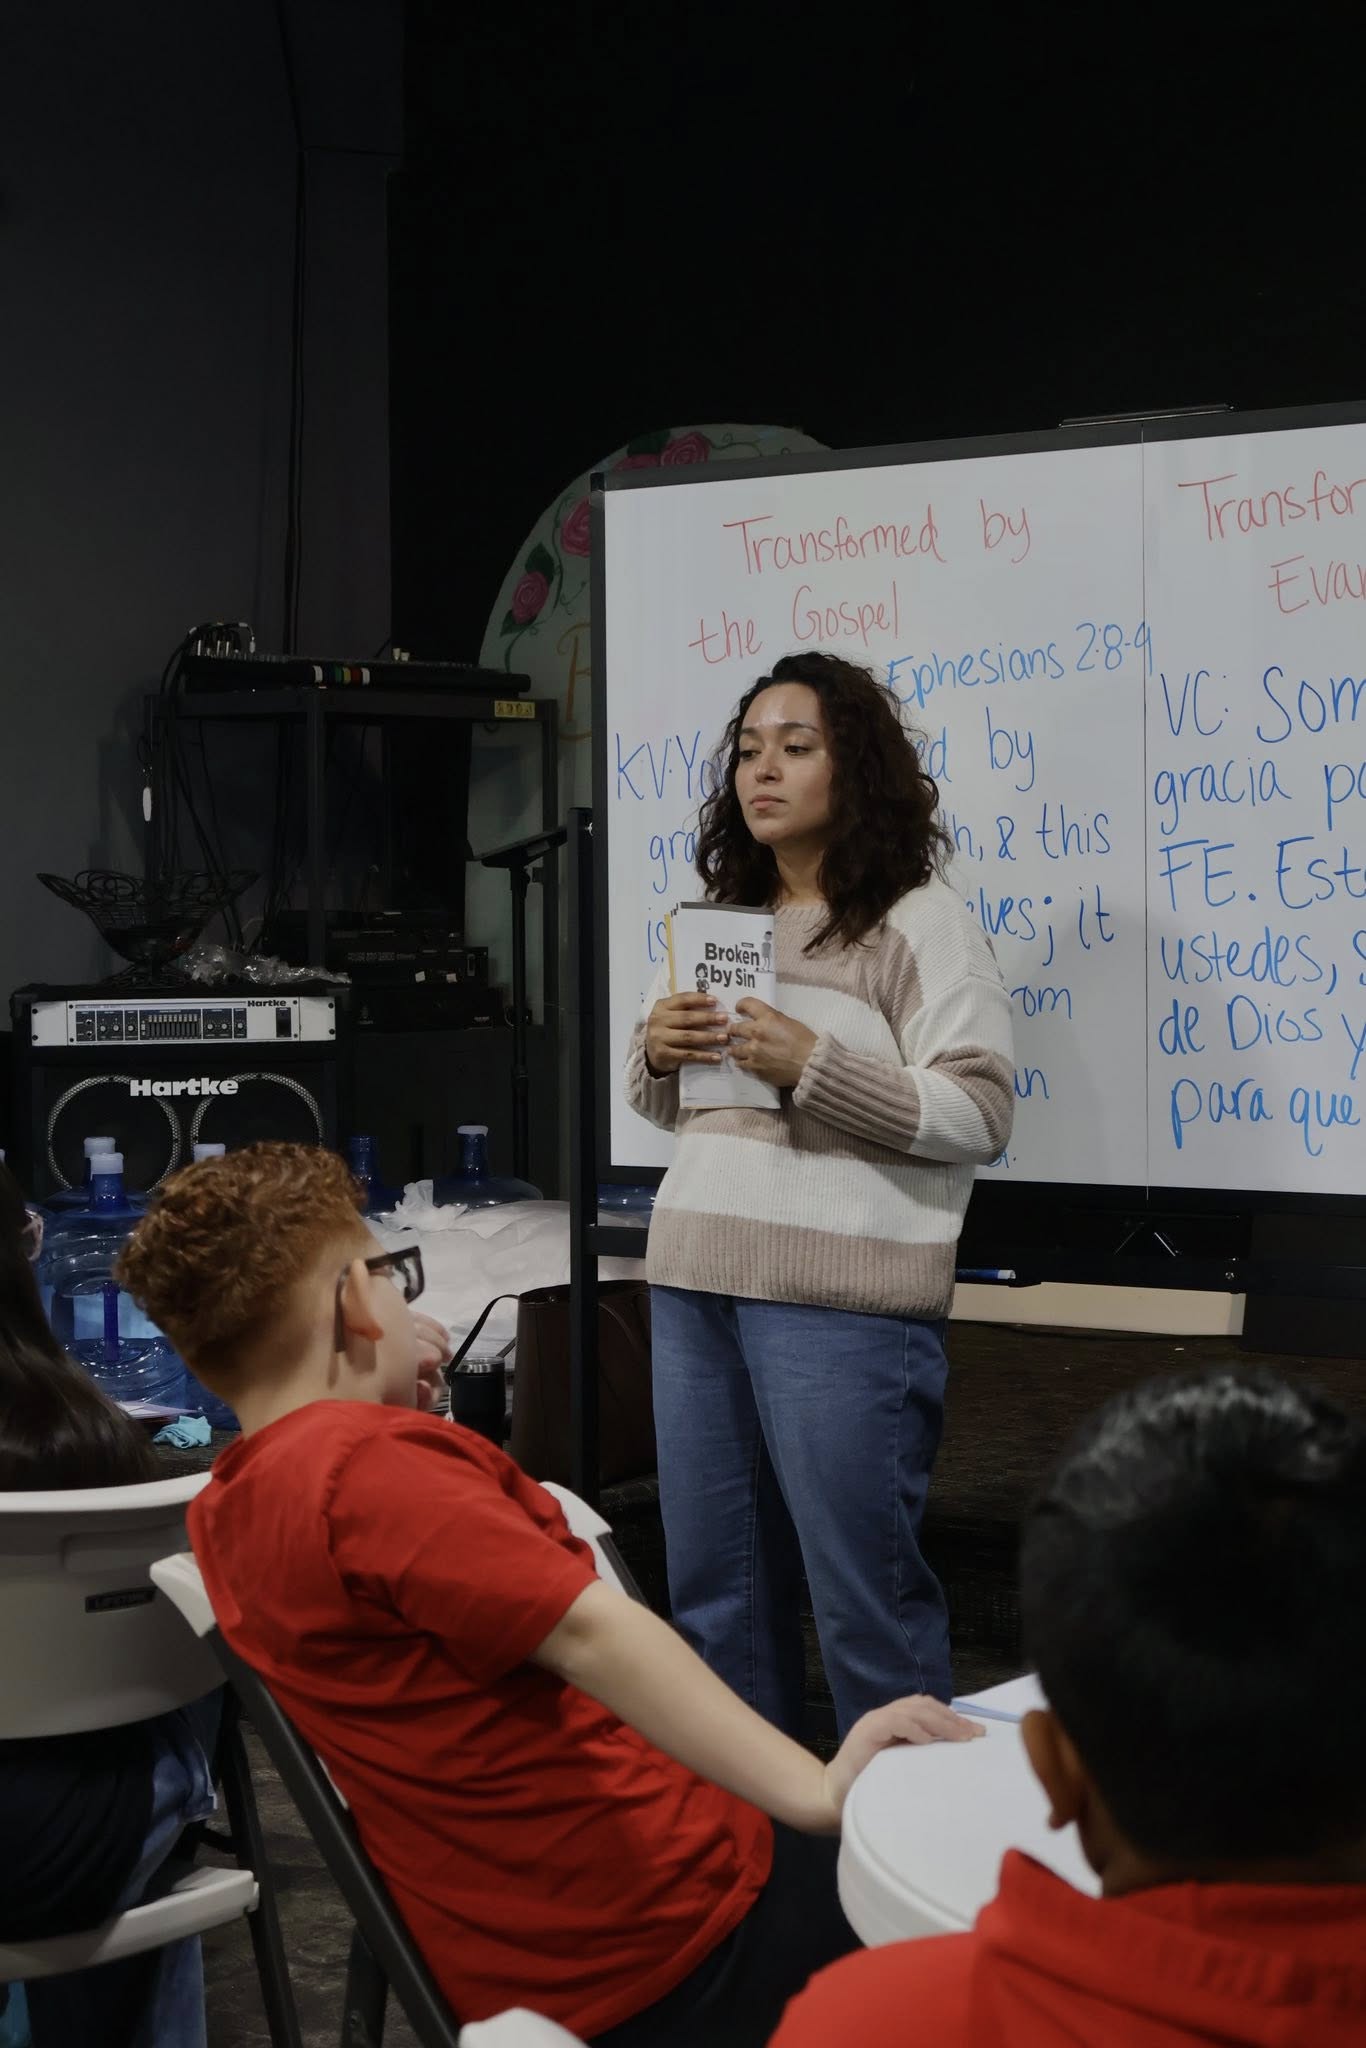 Transformed by
the Gospel
Ephesians 2:8-9
KV: by
& this
is it
Transfor
Evan
VC: Som
gracia po
FE. Esto
ustedes, s
de Dios y
para que
Broken
by Sin
Hartke
Hartke
LIFETIME